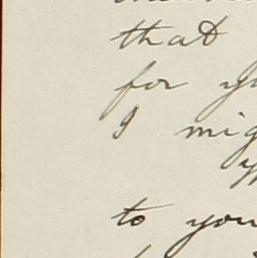 that
for
I mig
to you